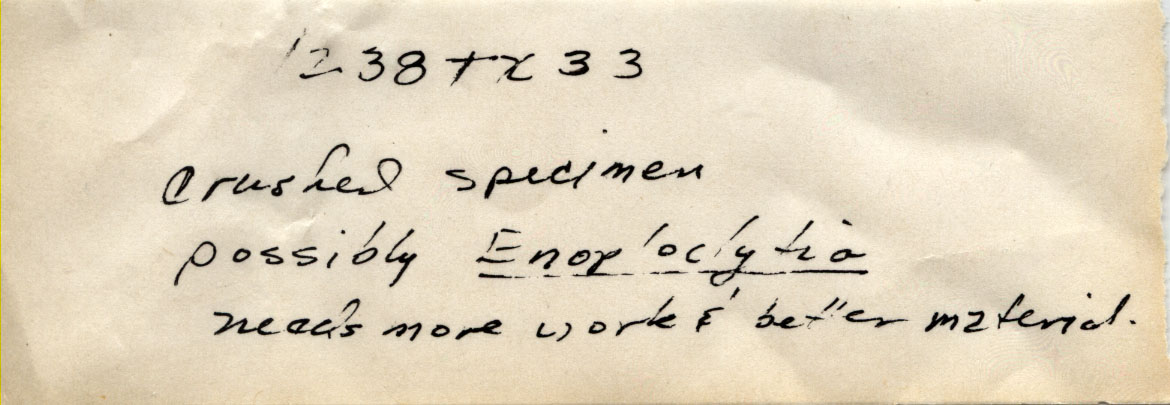 1238TX33
Crushed specimen
possibly Enoploclytia
needs more work & better material.